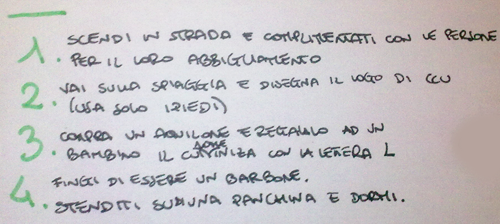 1. SCENDI IN STRADA E COMPLIMENTATI CON LE PERSONE
PER IL LORO ABBIGLIAMENTO
2. VAI SULLA SPIAGGIA E DISEGNA IL LOGO DI CCU
(USA SOLO I PIEDI)
3. COMPRA UN AQUILONE E REGALALO AD UN
BAMBINO IL CUI NOME INIZIA CON LA LETTERA L
4. FINGI DI ESSERE UN BARBONE.
STENDITI SU DI UNA PANCHINA E DORMI.